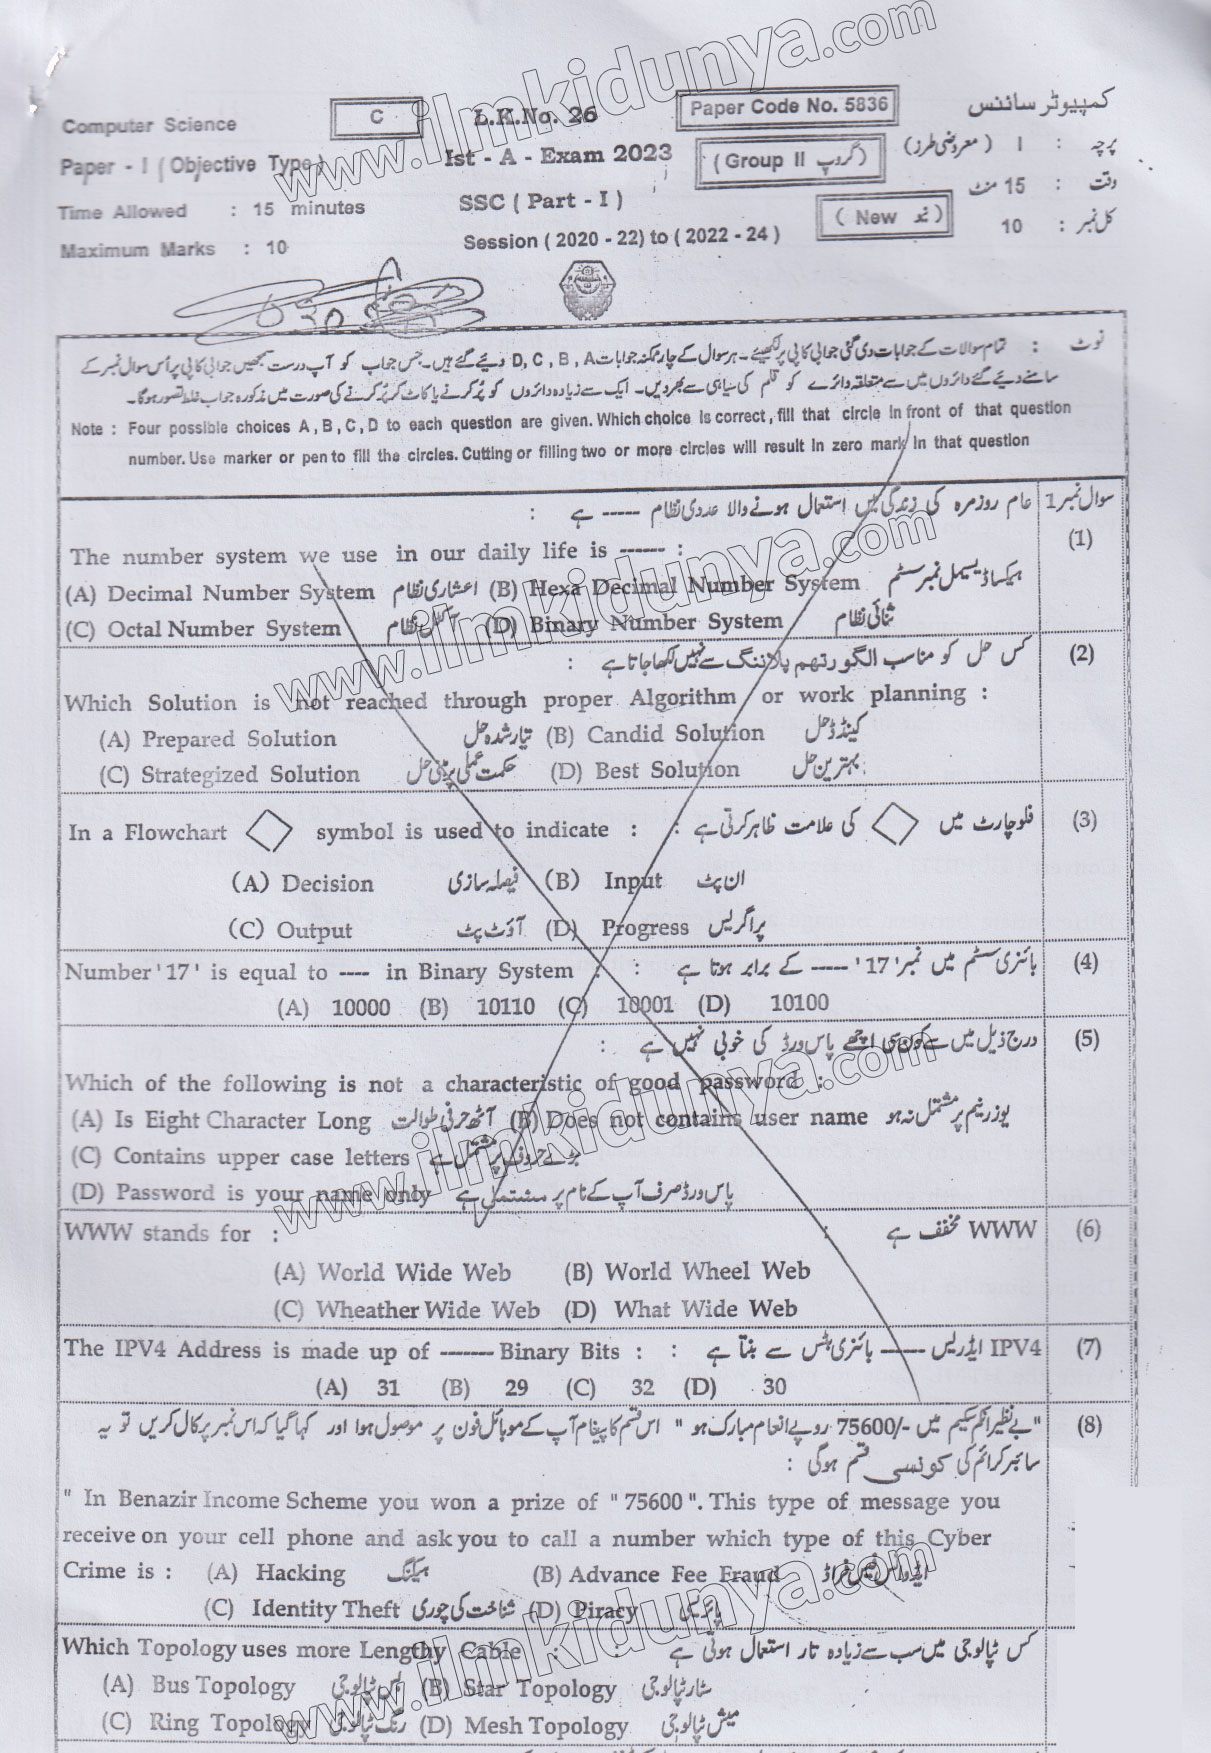 www.ilmkidunya.com
Computer Science C L.K.No. 26 Paper Code No. 5836 کمپیوٹر سائنس
Paper - I ( Objective Type ) Ist - A - Exam 2023 ( Group II گروپ ) پرچہ : I ( معروضی طرز )
Time Allowed : 15 minutes SSC ( Part - I ) وقت : 15 منٹ
Maximum Marks : 10 Session ( 2020 - 22) to ( 2022 - 24 ) ( New نیو ) کل نمبر : 10
نوٹ : تمام سوالات کے جوابات دی گئی جوابی کاپی پر لکھیئے۔ ہر سوال کے چار ممکنہ جوابات D, C , B , A دیئے گئے ہیں۔ جس جواب کو آپ درست سمجھیں جوابی کاپی پر اُس سوال نمبر کے
سامنے دیئے گئے دائروں میں سے متعلقہ دائرے کو قلم کی سیاہی سے بھر دیں۔ ایک سے زیادہ دائروں کو پُر کرنے یا کاٹ کر پُر کرنے کی صورت میں مذکورہ جواب غلط تصور ہوگا۔
Note : Four possible choices A , B , C , D to each question are given. Which choice is correct , fill that circle in front of that question
number. Use marker or pen to fill the circles. Cutting or filling two or more circles will result in zero mark in that question
سوال نمبر 1 عام روزمرہ کی زندگی میں استعمال ہونے والا عددی نظام ----- ہے :
(1)
The number system we use in our daily life is ------ :
www.ilmkidunya.com
(A) Decimal Number System اعشاری نظام (B) Hexa Decimal Number System ہیکسا ڈیسیمل نمبر سسٹم
(C) Octal Number System آکٹل نظام (D) Binary Number System ثنائی نظام
(2) کس حل کو مناسب الگورتھم پلاننگ سے نہیں لکھا جاتا ہے :
Which Solution is not reached through proper Algorithm or work planning :
(A) Prepared Solution تیار شدہ حل (B) Candid Solution کینڈڈ حل
(C) Strategized Solution حکمت عملی پر مبنی حل (D) Best Solution بہترین حل
(3) فلوچارٹ میں کی علامت ظاہر کرتی ہے :
In a Flowchart symbol is used to indicate :
(A) Decision فیصلہ سازی (B) Input ان پٹ
(C) Output آؤٹ پٹ (D) Progress پراگریس
(4) بائنری سسٹم میں نمبر '17' ----- کے برابر ہوتا ہے :
Number '17' is equal to ---- in Binary System :
(A) 10000 (B) 10110 (C) 10001 (D) 10100
(5) درج ذیل میں سے کون سی اچھے پاس ورڈ کی خوبی نہیں ہے :
Which of the following is not a characteristic of good password :
www.ilmkidunya.com
(A) Is Eight Character Long آٹھ حرفی طوالت (B) Does not contains user name یوزر نیم پر مشتمل نہ ہو
(C) Contains upper case letters بڑے حروف پر مشتمل ہے
(D) Password is your name only پاس ورڈ صرف آپ کے نام پر مشتمل ہے
(6) WWW مخفف ہے :
WWW stands for :
(A) World Wide Web (B) World Wheel Web
(C) Wheather Wide Web (D) What Wide Web
(7) IPV4 ایڈریس ----- بائنری بٹس سے بنتا ہے :
The IPV4 Address is made up of ------- Binary Bits :
(A) 31 (B) 29 (C) 32 (D) 30
(8) "بے نظیر انکم سکیم میں -/75600 روپے انعام مبارک ہو " اس قسم کا پیغام آپ کے موبائل فون پر موصول ہوا اور کہا گیا کہ اس نمبر پر کال کریں تو یہ
سائبر کرائم کی کونسی قسم ہوگی :
" In Benazir Income Scheme you won a prize of " 75600 ". This type of message you
receive on your cell phone and ask you to call a number which type of this Cyber
Crime is : (A) Hacking ہیکنگ (B) Advance Fee Fraud ایڈوانس فیس فراڈ
(C) Identity Theft شناخت کی چوری (D) Piracy پائریسی
www.ilmkidunya.com
کس ٹپالوجی میں سب سے زیادہ تار استعمال ہوتی ہے :
Which Topology uses more Lengthy Cable :
(A) Bus Topology بس ٹپالوجی (B) Star Topology سٹار ٹپالوجی
(C) Ring Topology رنگ ٹپالوجی (D) Mesh Topology میش ٹپالوجی